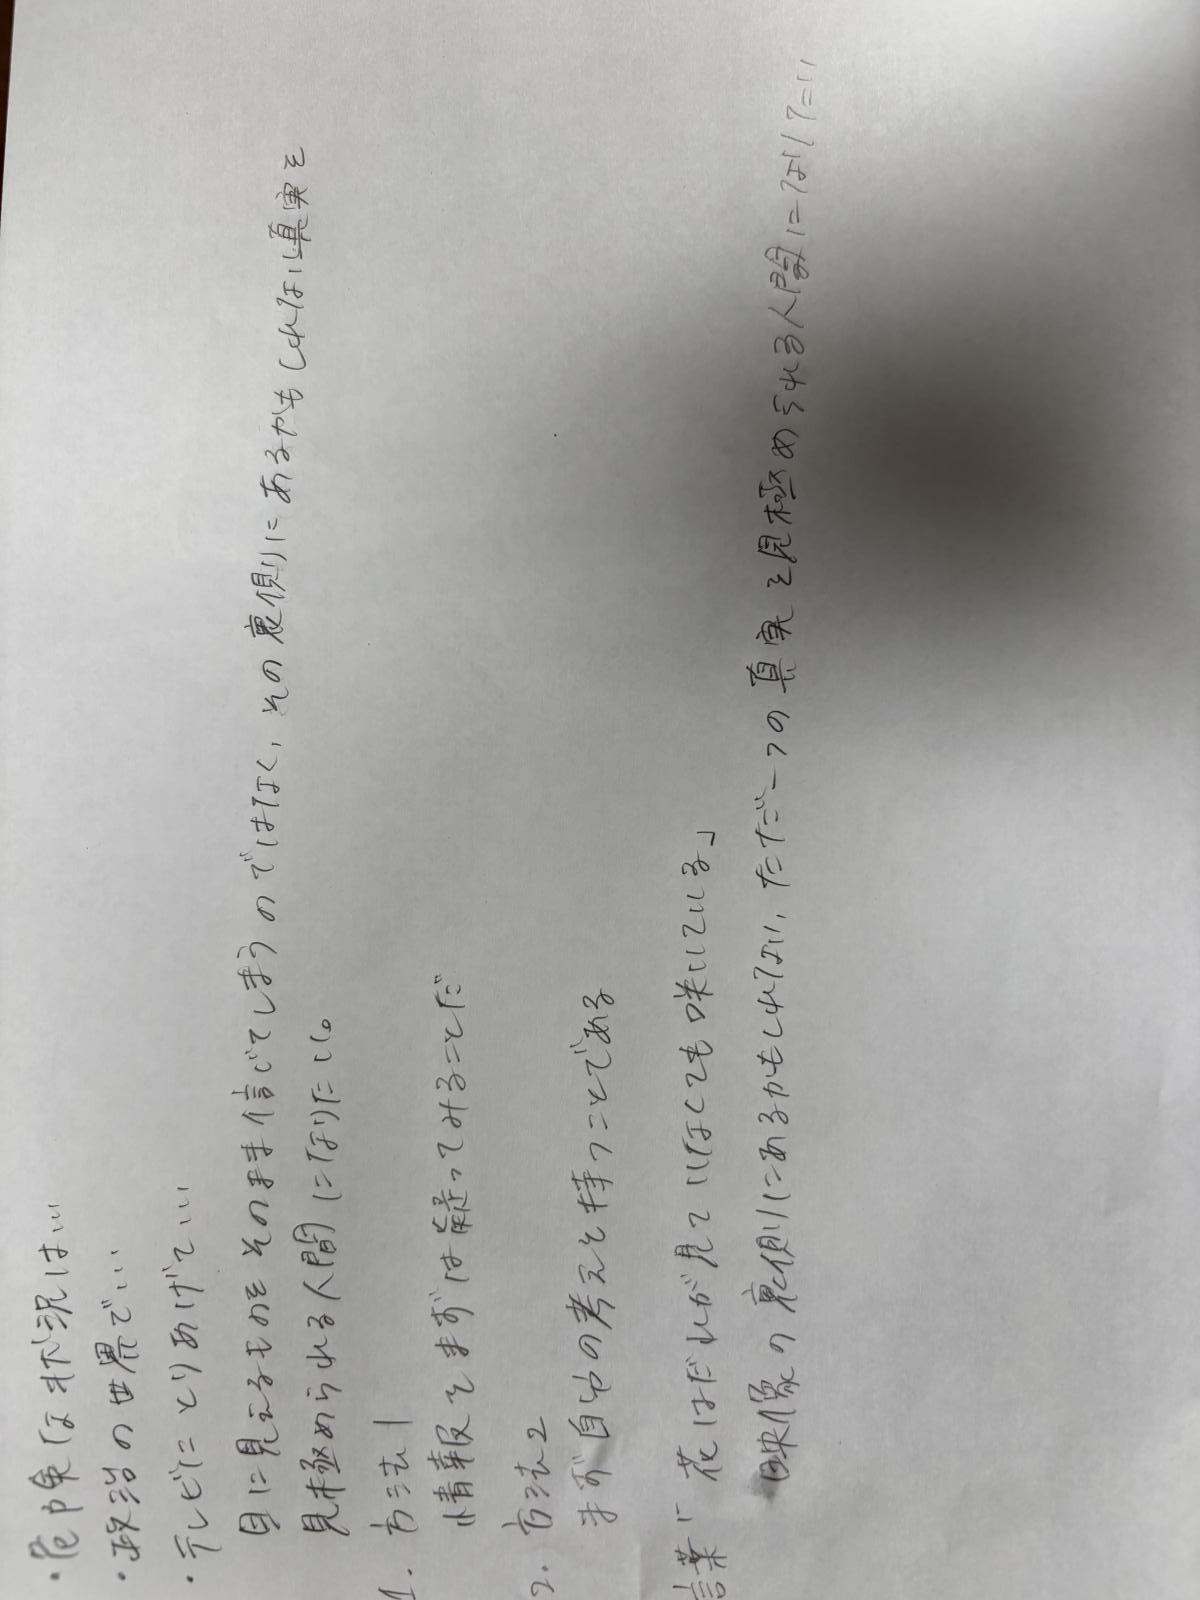 ・危険な状況は…
・政治の世界で…
・テレビにとりあげて…
目に見えるものをそのまま信じてしまうのではなく、その裏側にあるかもしれない真実を
見極められる人間になりたい。
1. 方法1
情報をまずは疑ってみることだ
2. 方法2
まず自分の考えを持つことである
言葉に 花はだれが見ていなくても咲いている」
映像の裏側にあるかもしれない、ただ一つの真実を見極められる人間になりたい